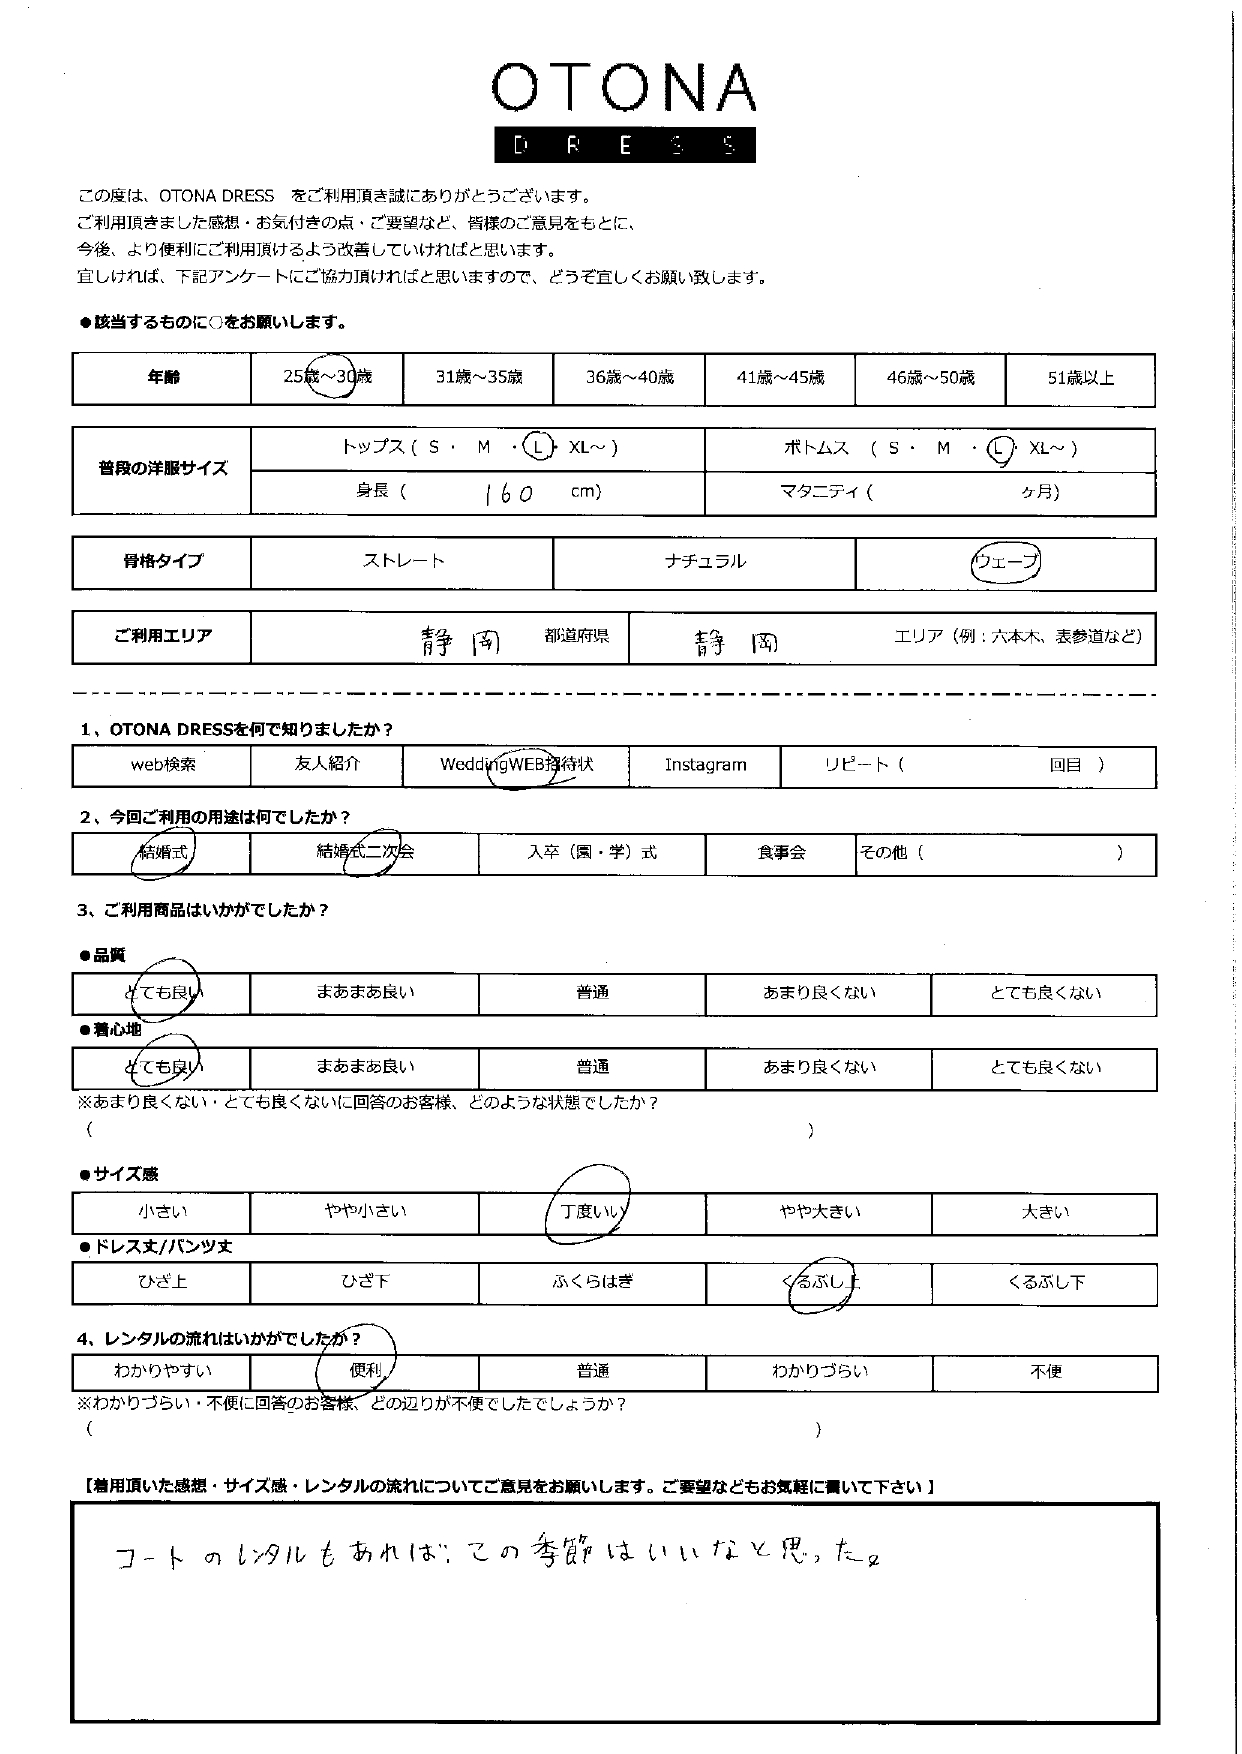 OTONA
DRESS
この度は、OTONA DRESS　をご利用頂き誠にありがとうございます。
ご利用頂きました感想・お気付きの点・ご要望など、皆様のご意見をもとに、
今後、より便利にご利用頂けるよう改善していければと思います。
宜しければ、下記アンケートにご協力頂ければと思いますので、どうぞ宜しくお願い致します。
●該当するものに○をお願いします。
年齢 25歳～30歳 31歳～35歳 36歳～40歳 41歳～45歳 46歳～50歳 51歳以上
普段の洋服サイズ トップス ( S ・ M ・ L ・ XL～ ) ボトムス ( S ・ M ・ L ・ XL～ )
身長 ( 160 cm) マタニティ ( ヶ月)
骨格タイプ ストレート ナチュラル ウェーブ
ご利用エリア 静岡 都道府県 静岡 エリア（例：六本木、表参道など）
1、OTONA DRESSを何で知りましたか？
web検索 友人紹介 WeddingWEB招待状 Instagram リピート ( 回目 )
2、今回ご利用の用途は何でしたか？
結婚式 結婚式二次会 入卒（園・学）式 食事会 その他 ( )
3、ご利用商品はいかがでしたか？
●品質
とても良い まあまあ良い 普通 あまり良くない とても良くない
●着心地
とても良い まあまあ良い 普通 あまり良くない とても良くない
※あまり良くない・とても良くないに回答のお客様、どのような状態でしたか？
( )
●サイズ感
小さい やや小さい 丁度いい やや大きい 大きい
●ドレス丈/パンツ丈
ひざ上 ひざ下 ふくらはぎ くるぶし上 くるぶし下
4、レンタルの流れはいかがでしたか？
わかりやすい 便利 普通 わかりづらい 不便
※わかりづらい・不便に回答のお客様、どの辺りが不便でしたでしょうか？
( )
【着用頂いた感想・サイズ感・レンタルの流れについてご意見をお願いします。ご要望などもお気軽に書いて下さい 】
コートのレンタルもあれば、この季節はいいなと思った。